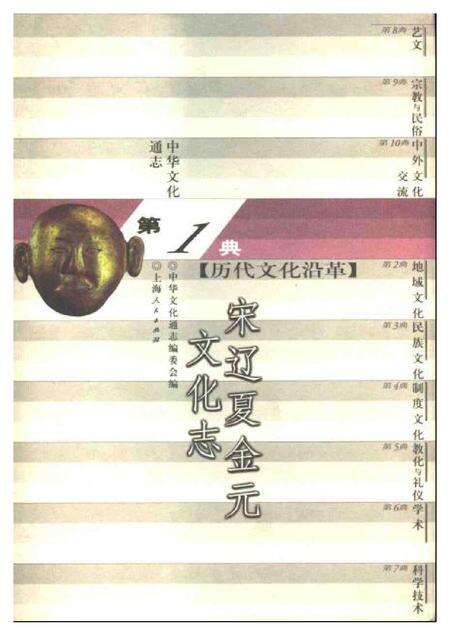 第8典
艺文
第9典
宗教与民俗
第10典
中外文化
交流
中华文化
通志
第1典
【历代文化沿革】
宋辽夏金元
文化志
◎中华文化通志编委会编
◎上海人民出版社
第2典
地域文化
第3典
民族文化
第4典
制度文化
第5典
教化与礼仪
第6典
学术
第7典
科学技术